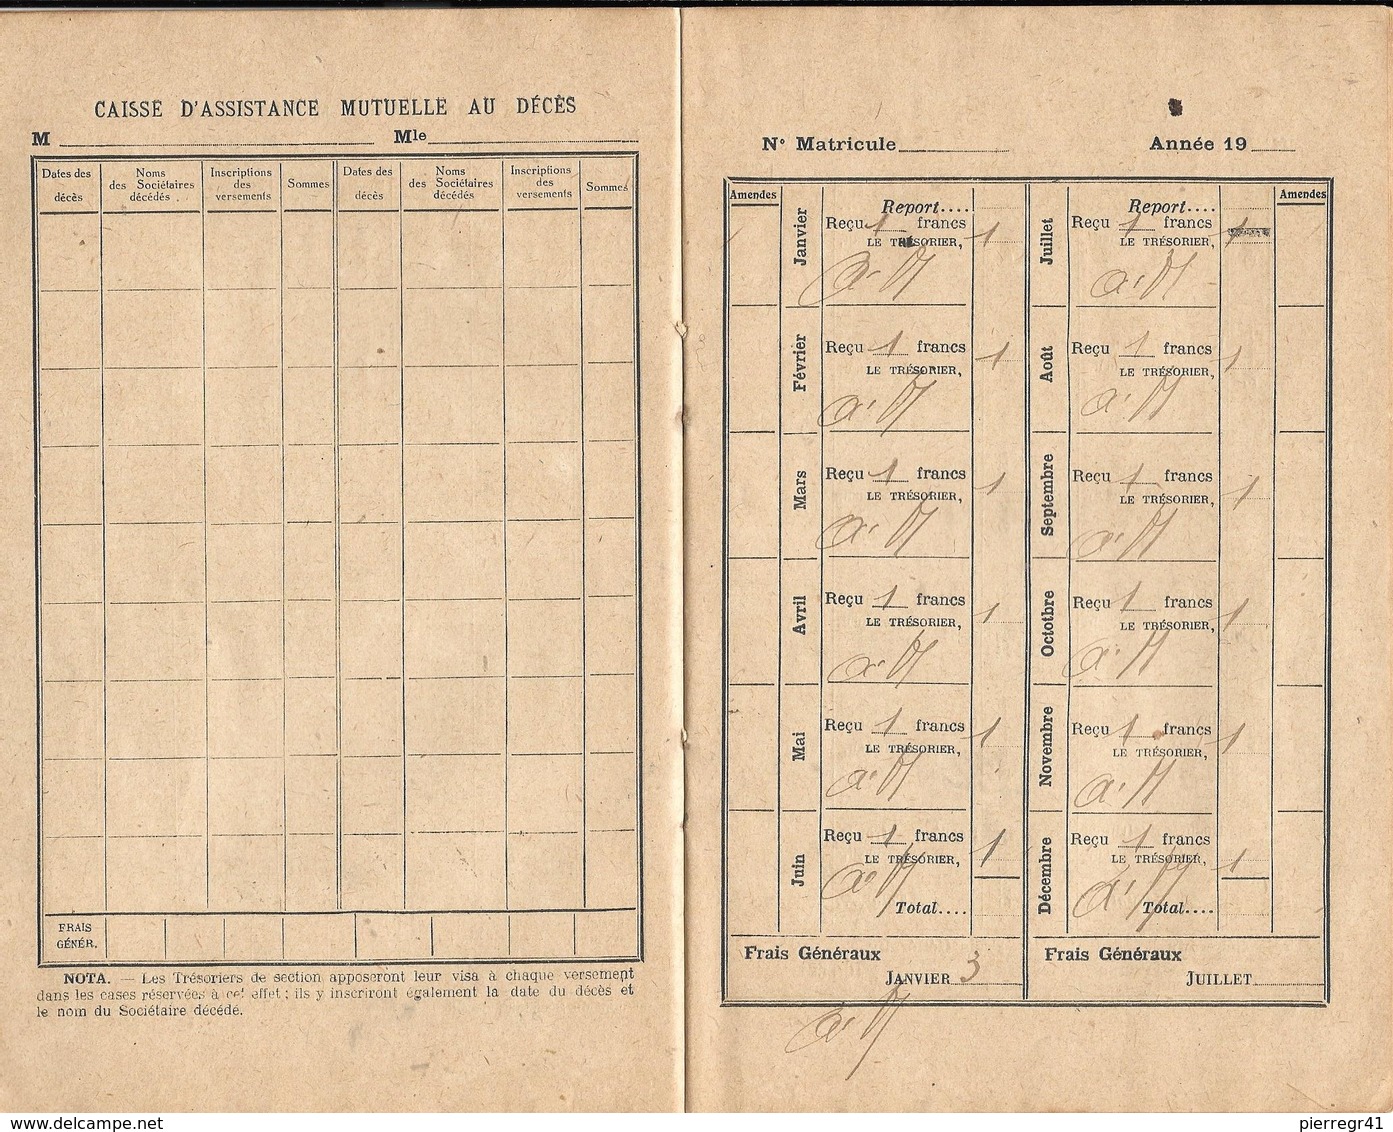 CAISSE D'ASSISTANCE MUTUELLE AU DÉCÈS
M Mle
Dates des décès
Noms des Sociétaires décédés
Inscriptions des versements
Sommes
Dates des décès
Noms des Sociétaires décédés
Inscriptions des versements
Sommes
FRAIS
GÉNÉR.
NOTA. — Les Trésoriers de section apposeront leur visa à chaque versement
dans les cases réservées à cet effet ; ils y inscriront également la date du décès et
le nom du Sociétaire décédé.
N° Matricule Année 19
Amendes
Report....
Janvier
Reçu 1 francs 1
LE TRÉSORIER,
Février
Reçu 1 francs 1
LE TRÉSORIER,
Mars
Reçu 1 francs 1
LE TRÉSORIER,
Avril
Reçu 1 francs 1
LE TRÉSORIER,
Mai
Reçu 1 francs 1
LE TRÉSORIER,
Juin
Reçu 1 francs 1
LE TRÉSORIER,
Total....
Frais Généraux
JANVIER 3
Report....
Amendes
Juillet
Reçu 1 francs 1
LE TRÉSORIER,
Août
Reçu 1 francs 1
LE TRÉSORIER,
Septembre
Reçu 1 francs 1
LE TRÉSORIER,
Octotbre
Reçu 1 francs 1
LE TRÉSORIER,
Novembre
Reçu 1 francs 1
LE TRÉSORIER,
Décembre
Reçu 1 francs 1
LE TRÉSORIER,
Total....
Frais Généraux
JUILLET
www.delcampe.net
pierregr41